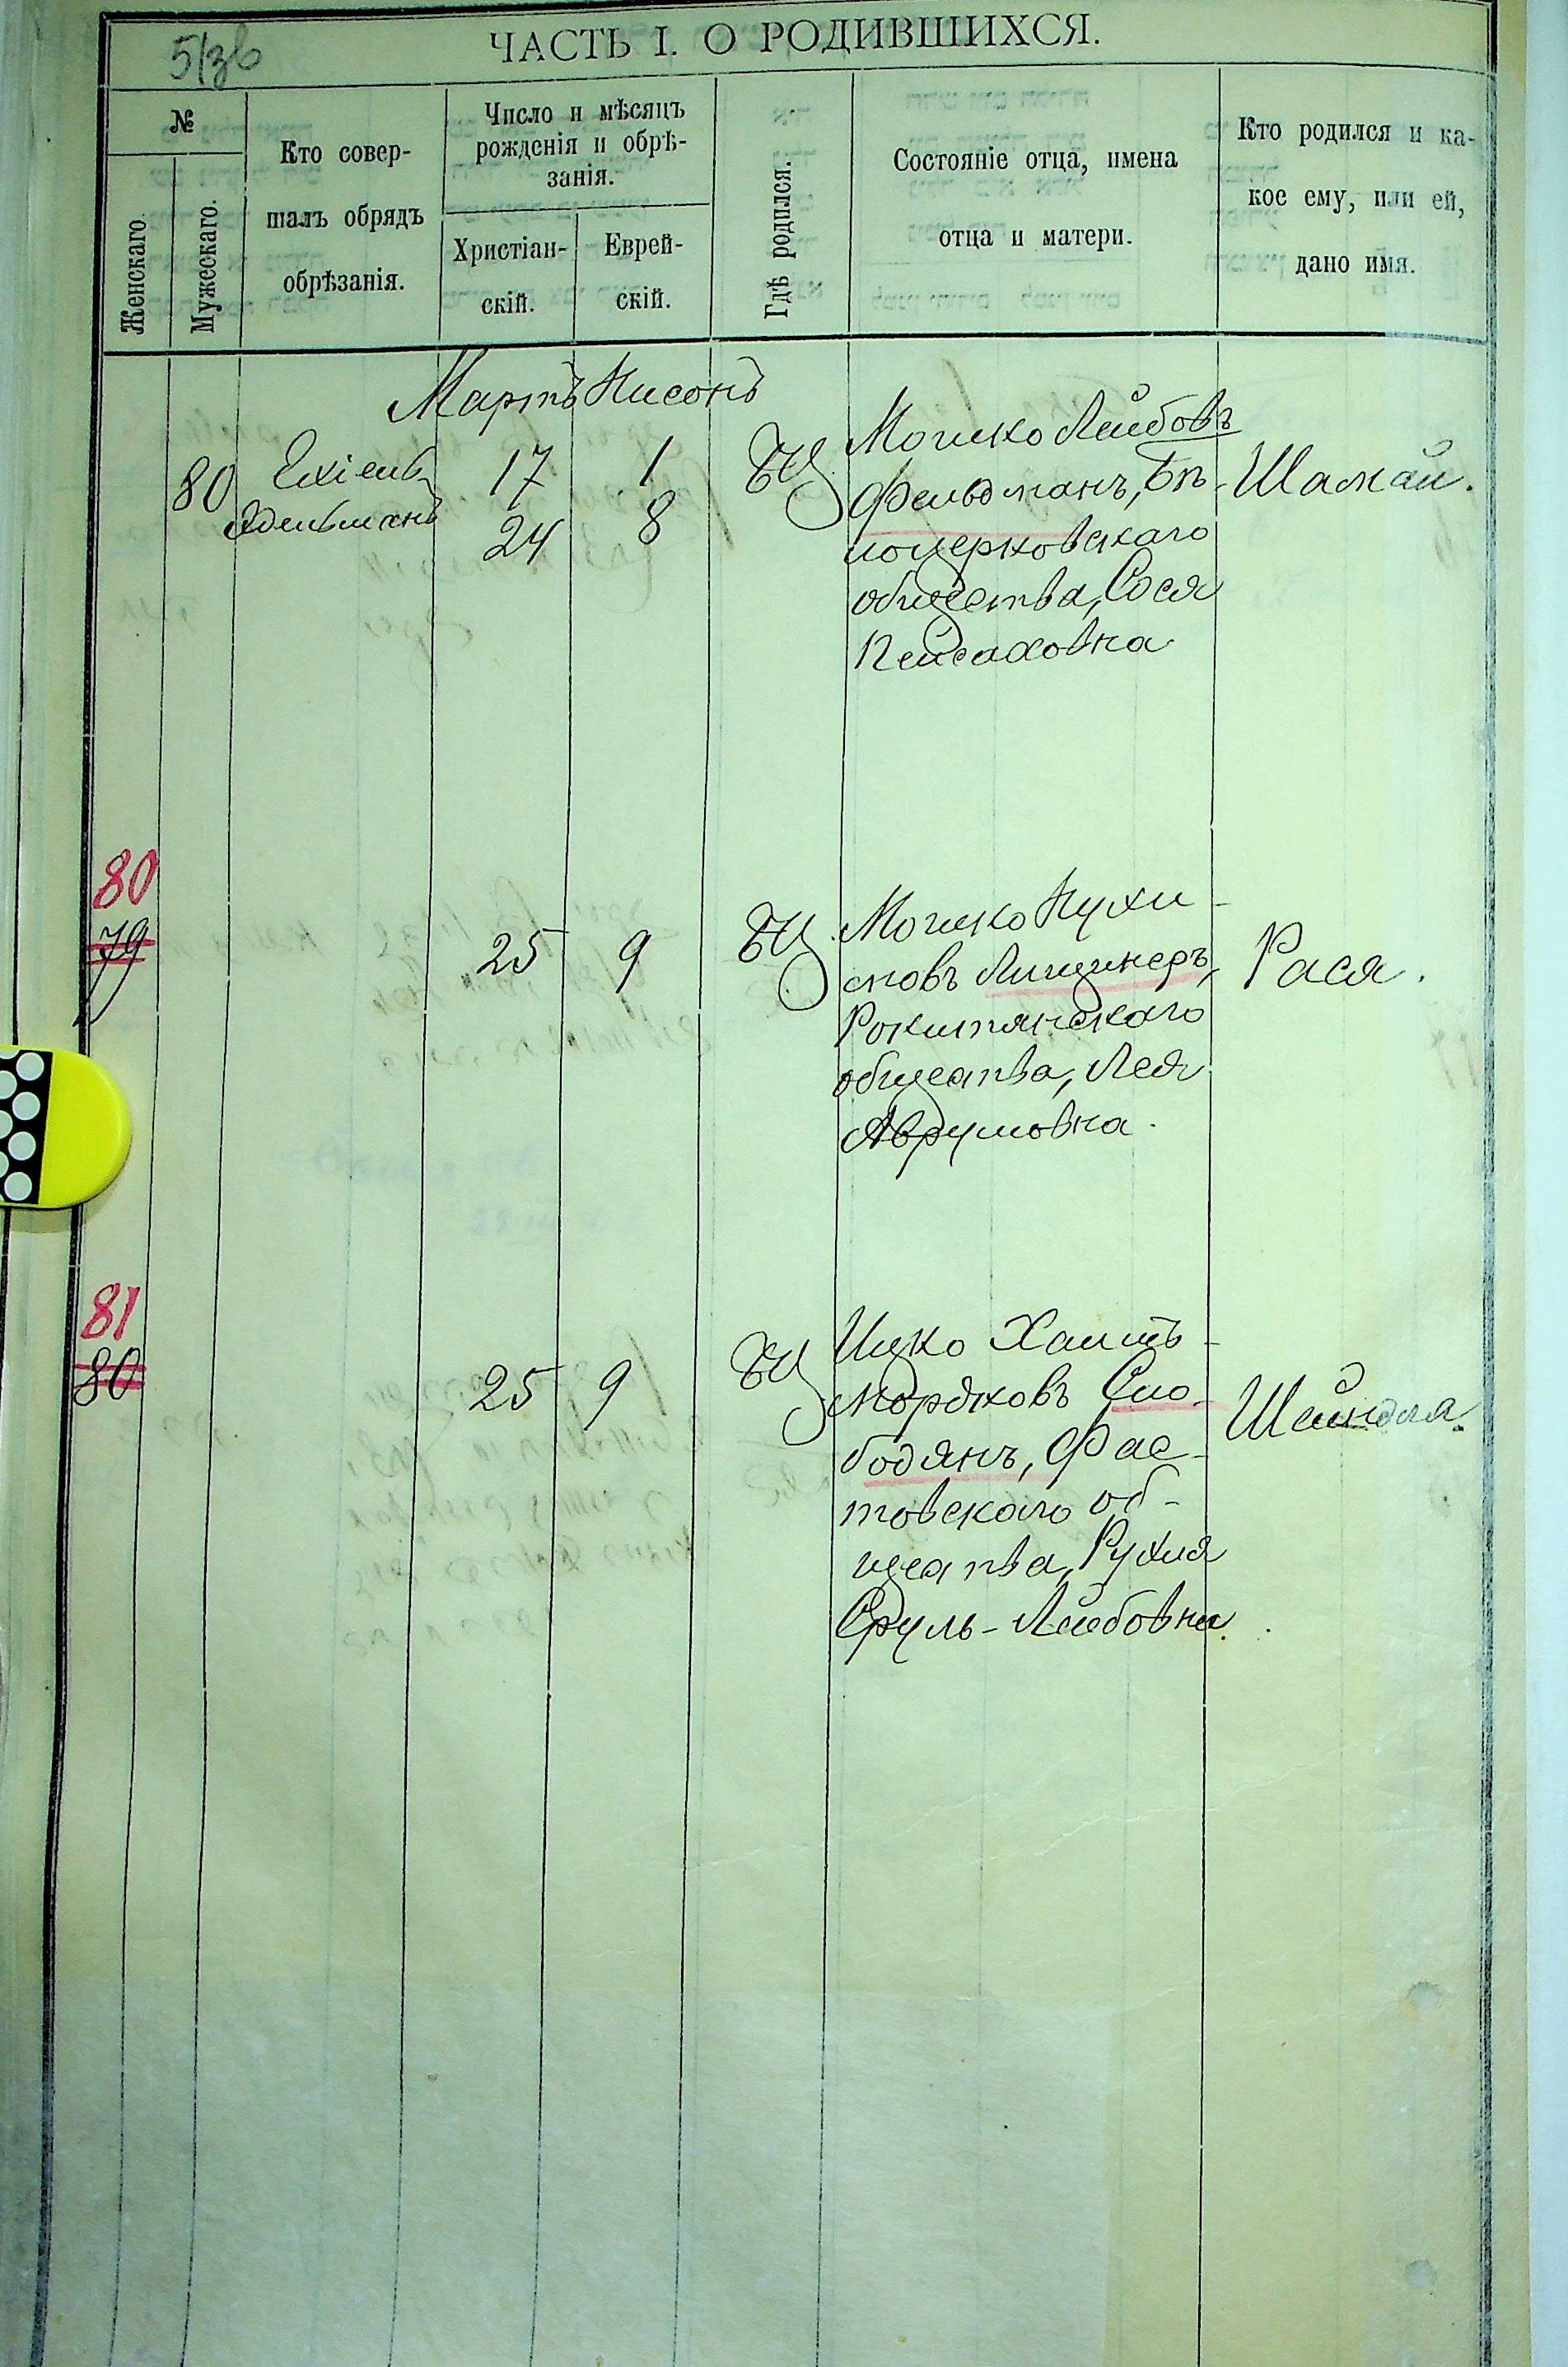 ЧАСТЬ I. О РОДИВШИХСЯ.
№
Женскаго.
Мужескаго.
Кто совер-
шалъ обрядъ
обрѣзанія.
Число и мѣсяцъ
рожденія и обрѣ-
занія.
Христіан-
скій.
Еврей-
скій.
Гдѣ родился.
Состояніе отца, имена
отца и матери.
Кто родился и ка-
кое ему, или ей,
дано имя.
Мартъ Нисонъ
80
Ехіель
Эдельманъ
17
24
1
8
БЦ
Мошко Лейбовъ
Фельдманъ, Бѣ-
лоцерковскаго
общества, Сося
Пейсаховна
Шамай.
80
79
25
9
БЦ.
Мошко Нухи-
мовъ Лищинеръ,
Рокитянскаго
общества, Лея
Аврумовна.
Рася.
81
80
25
9
БЦ
Ицко Хаимъ-
Мордковъ Сло-
бодянъ, Фас-
товскаго об-
щества, Рухля
Сруль-Лейбовна.
Шейндля.